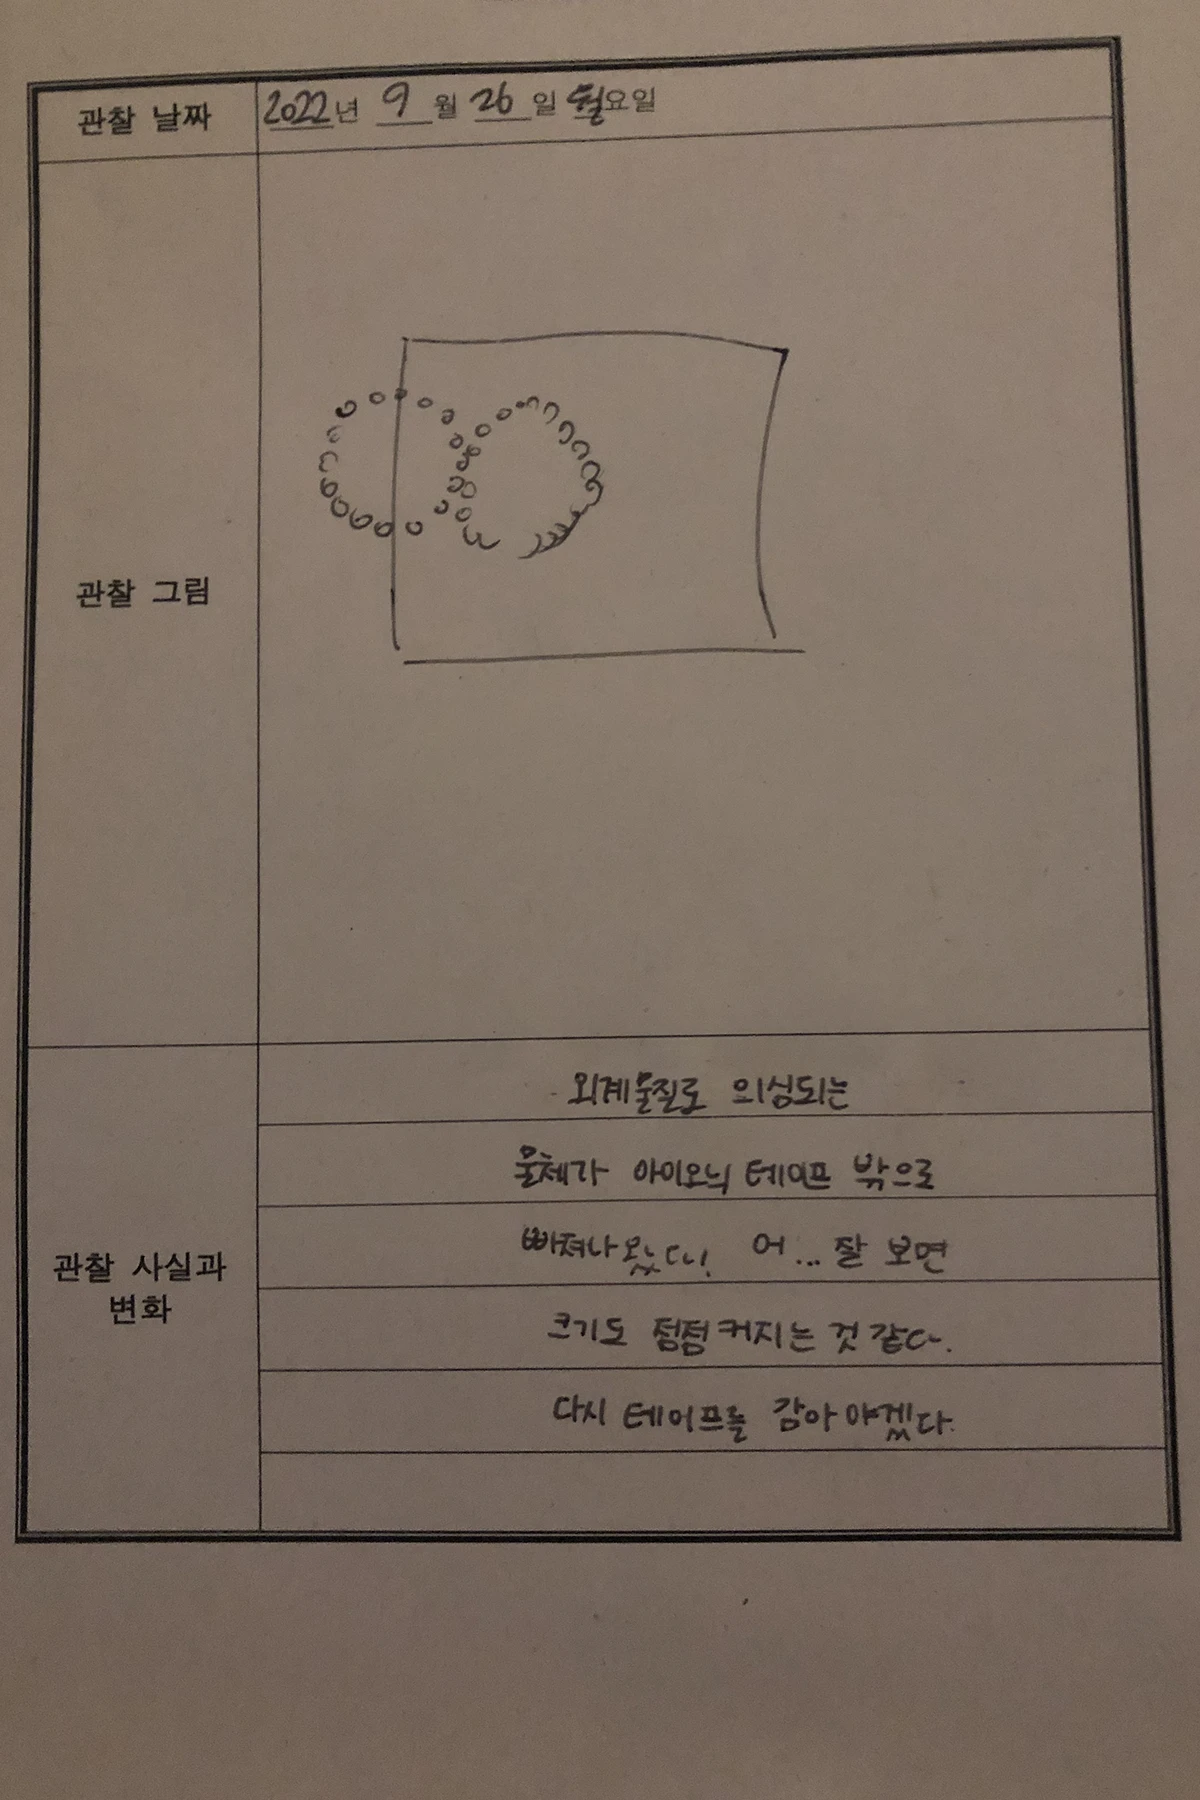 관찰 날짜
2022년 9월 26일 월요일
관찰 그림
관찰 사실과
변화
외계물질로 의심되는
물체가 아이오늬 테이프 밖으로
빠져나왔다! 어... 잘 보면
크기도 점점 커지는 것 같다.
다시 테이프를 감아야겠다.